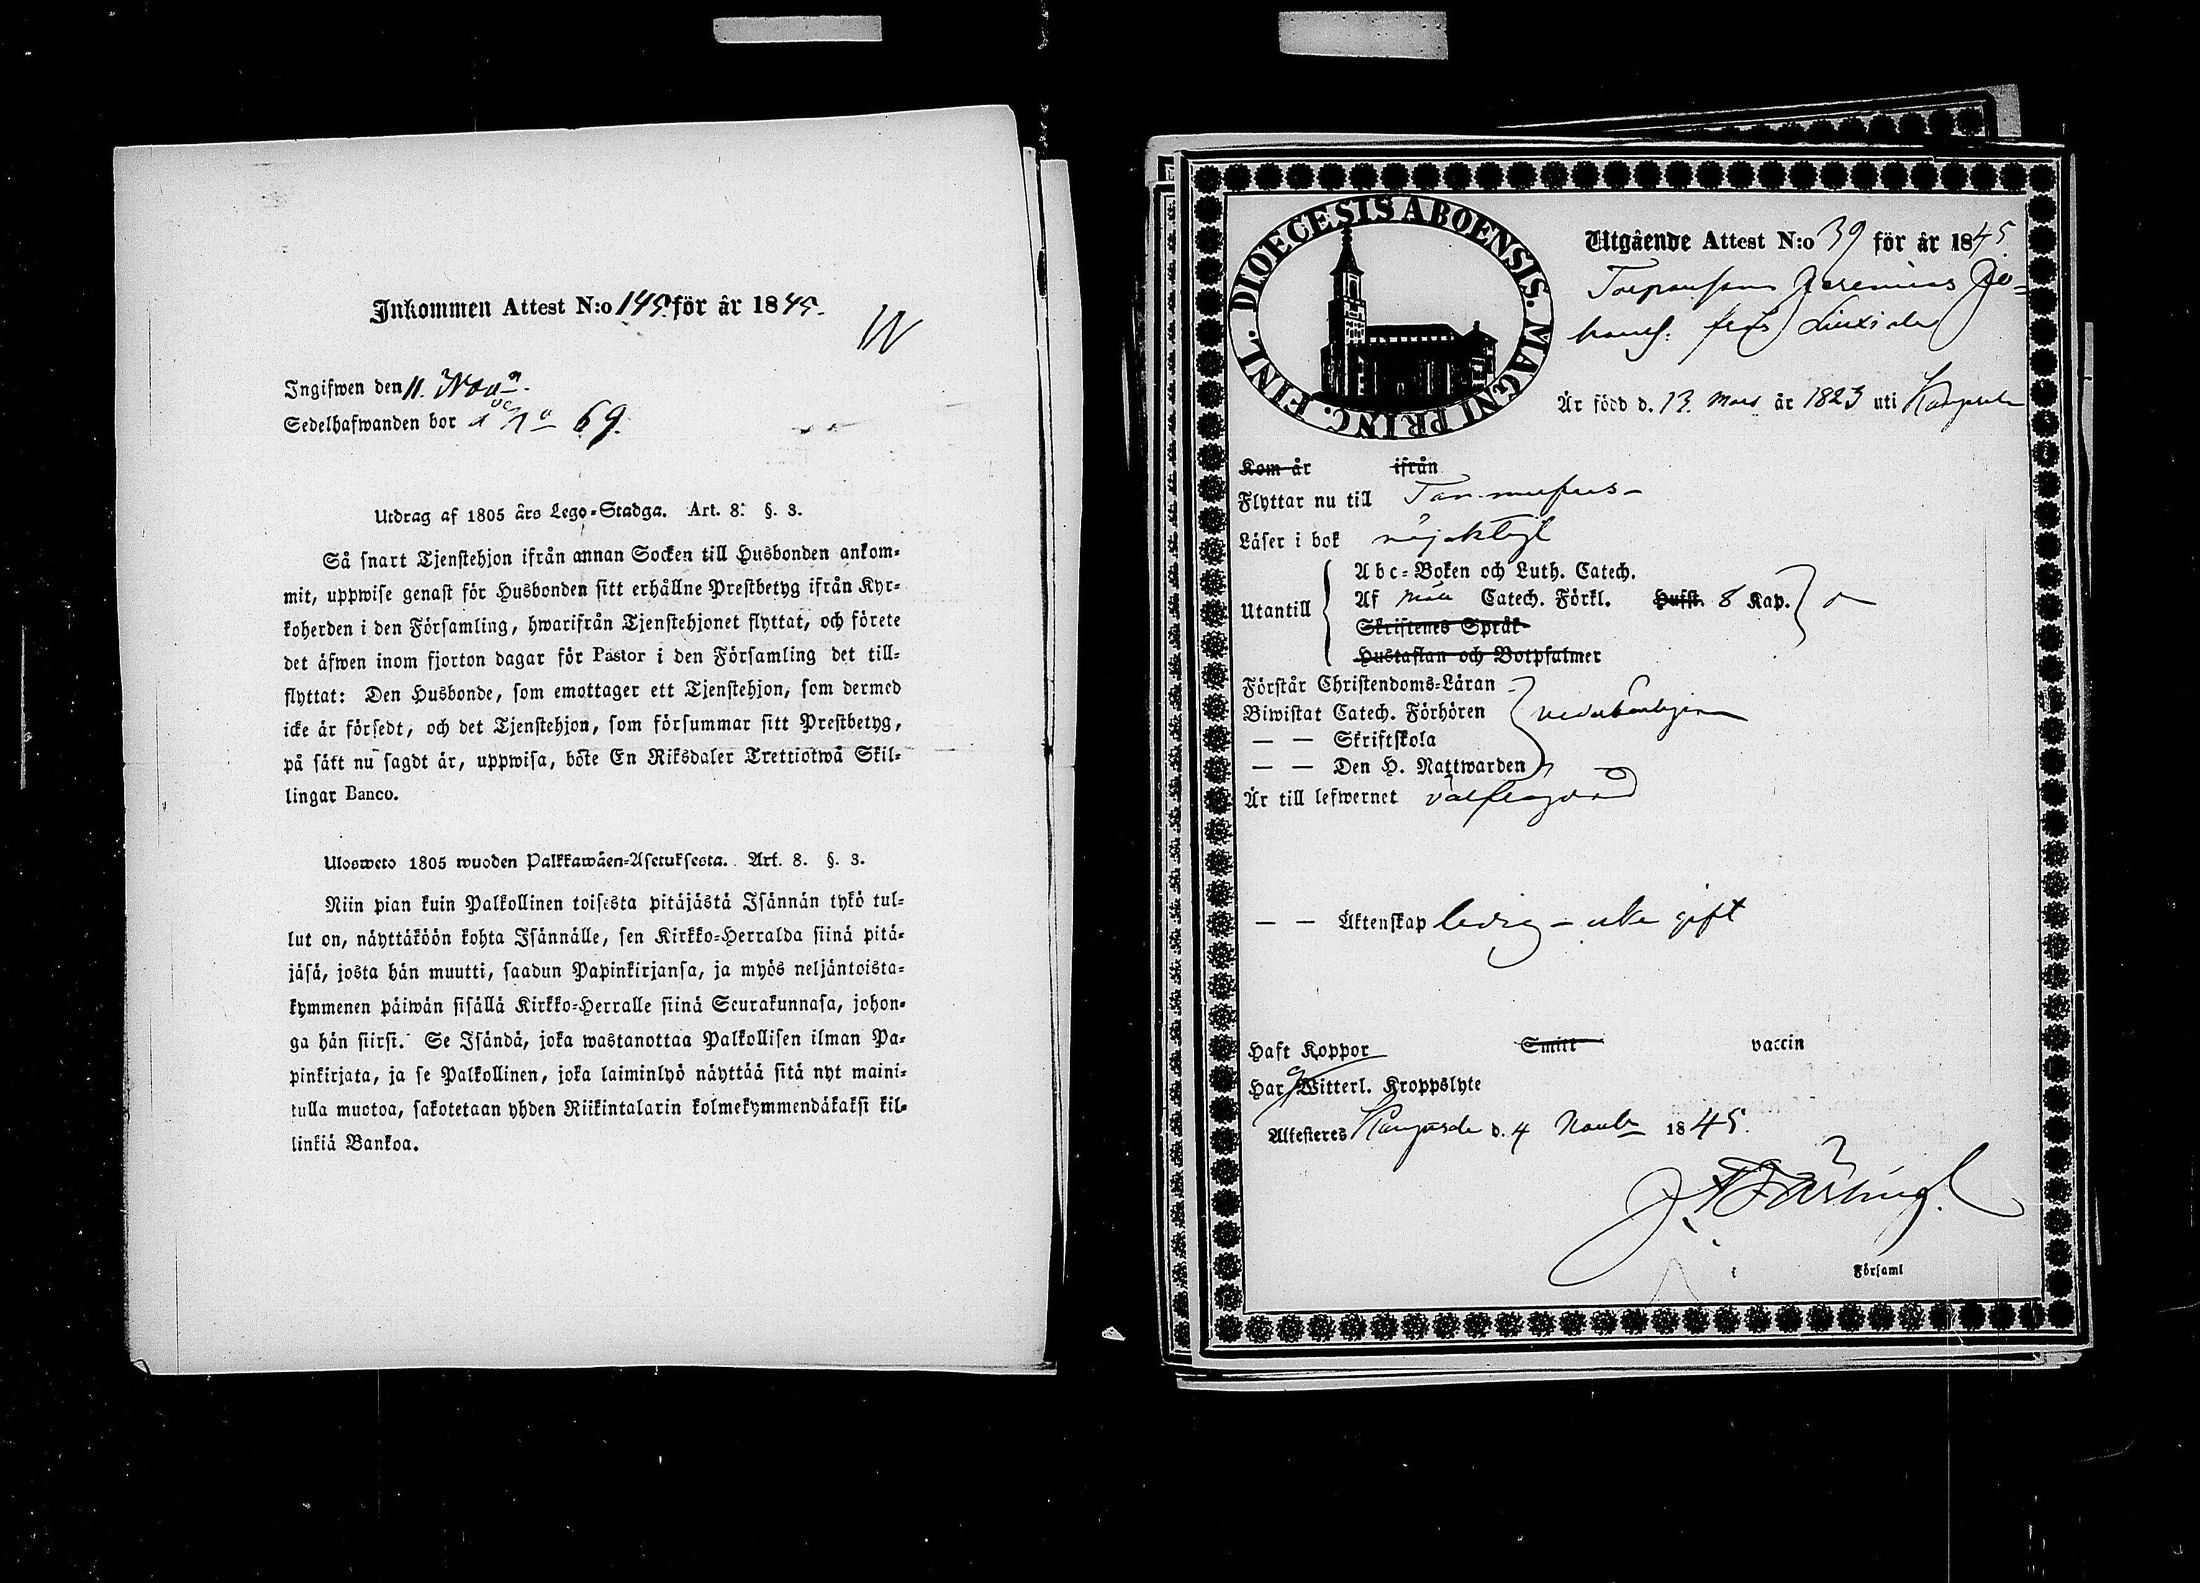 Inkommen Attest N:o 145 för år 1845.
Ingifwen den 11. Nov
Sedelhafwanden bor 69.
Utdrag af 1805 års Lego-Stadga. Art. 8. §. 3.
Så snart Tjenstehjon ifrån annan Socken till Husbonden ankom-
mit, uppwise genast för Husbonden sitt erhållne Prestbetyg ifrån Kyr-
koherden i den Församling, hwarifrån Tjenstehjonet flyttat, och förete
det äfwen inom fjorton dagar för Pastor i den Församling det till-
flyttat: Den Husbonde, som emottager ett Tjenstehjon, som dermed
icke är försedt, och det Tjenstehjon, som försummar sitt Prestbetyg,
på sätt nu sagdt är, uppwisa, böte En Riksdaler Trettiotwå Skil-
lingar Banco.
Ulosweto 1805 wuoden Palkkawäen-Asetuksesta. Art. 8. §. 3.
Niin pian kuin Palkollinen toisesta pitäjästä Isännän tykö tul-
lut on, näyttäköön kohta Isännälle, sen Kirkko-Herralda siinä pitä-
jäsä, josta hän muutti, saadun Papinkirjansa, ja myös neljäntoista-
kymmenen päiwän sisällä Kirkko-Herralle siinä Seurakunnasa, johon-
ga hän siirsi. Se Isändä, joka wastanottaa Palkollisen ilman Pa-
pinkirjata, ja se Palkollinen, joka laiminlyö näyttää sitä nyt maini-
tulla muotoa, sakotetaan yhden Riikintalarin kolmekymmendäkaksi kil-
linkiä Bankoa.
DIOECESIS ABOENSIS. MAGNI PRINC. FINL.
Utgående Attest N:o 39 för år 1845.
Torparesonen Jeremias Jo-
hansson från Liuxiala
Är född d. 13. Mars år 1823 uti Kangasala
Kom år ifrån
Flyttar nu till Tammerfors
Läser i bok nöjaktigt
Utantill
Abc-Boken och Luth. Catech.
Af Catech. Förkl. Husst. 8 Kap.
Skriftenes Språk
Hustaflan och Botpsalmer
Förstår Christendoms-Läran
Biwistat Catech. Förhören vederbörligen
— — Skriftskola
— — Den H. Nattwarden
Är till lefwernet välfrägdad
— — Äktenskap ledig - icke gift
Haft Koppor Smitt vaccin
Har Witterl. Kroppslyte
Attesteres Kangasala d. 4 Novemb 1845.
i Församl